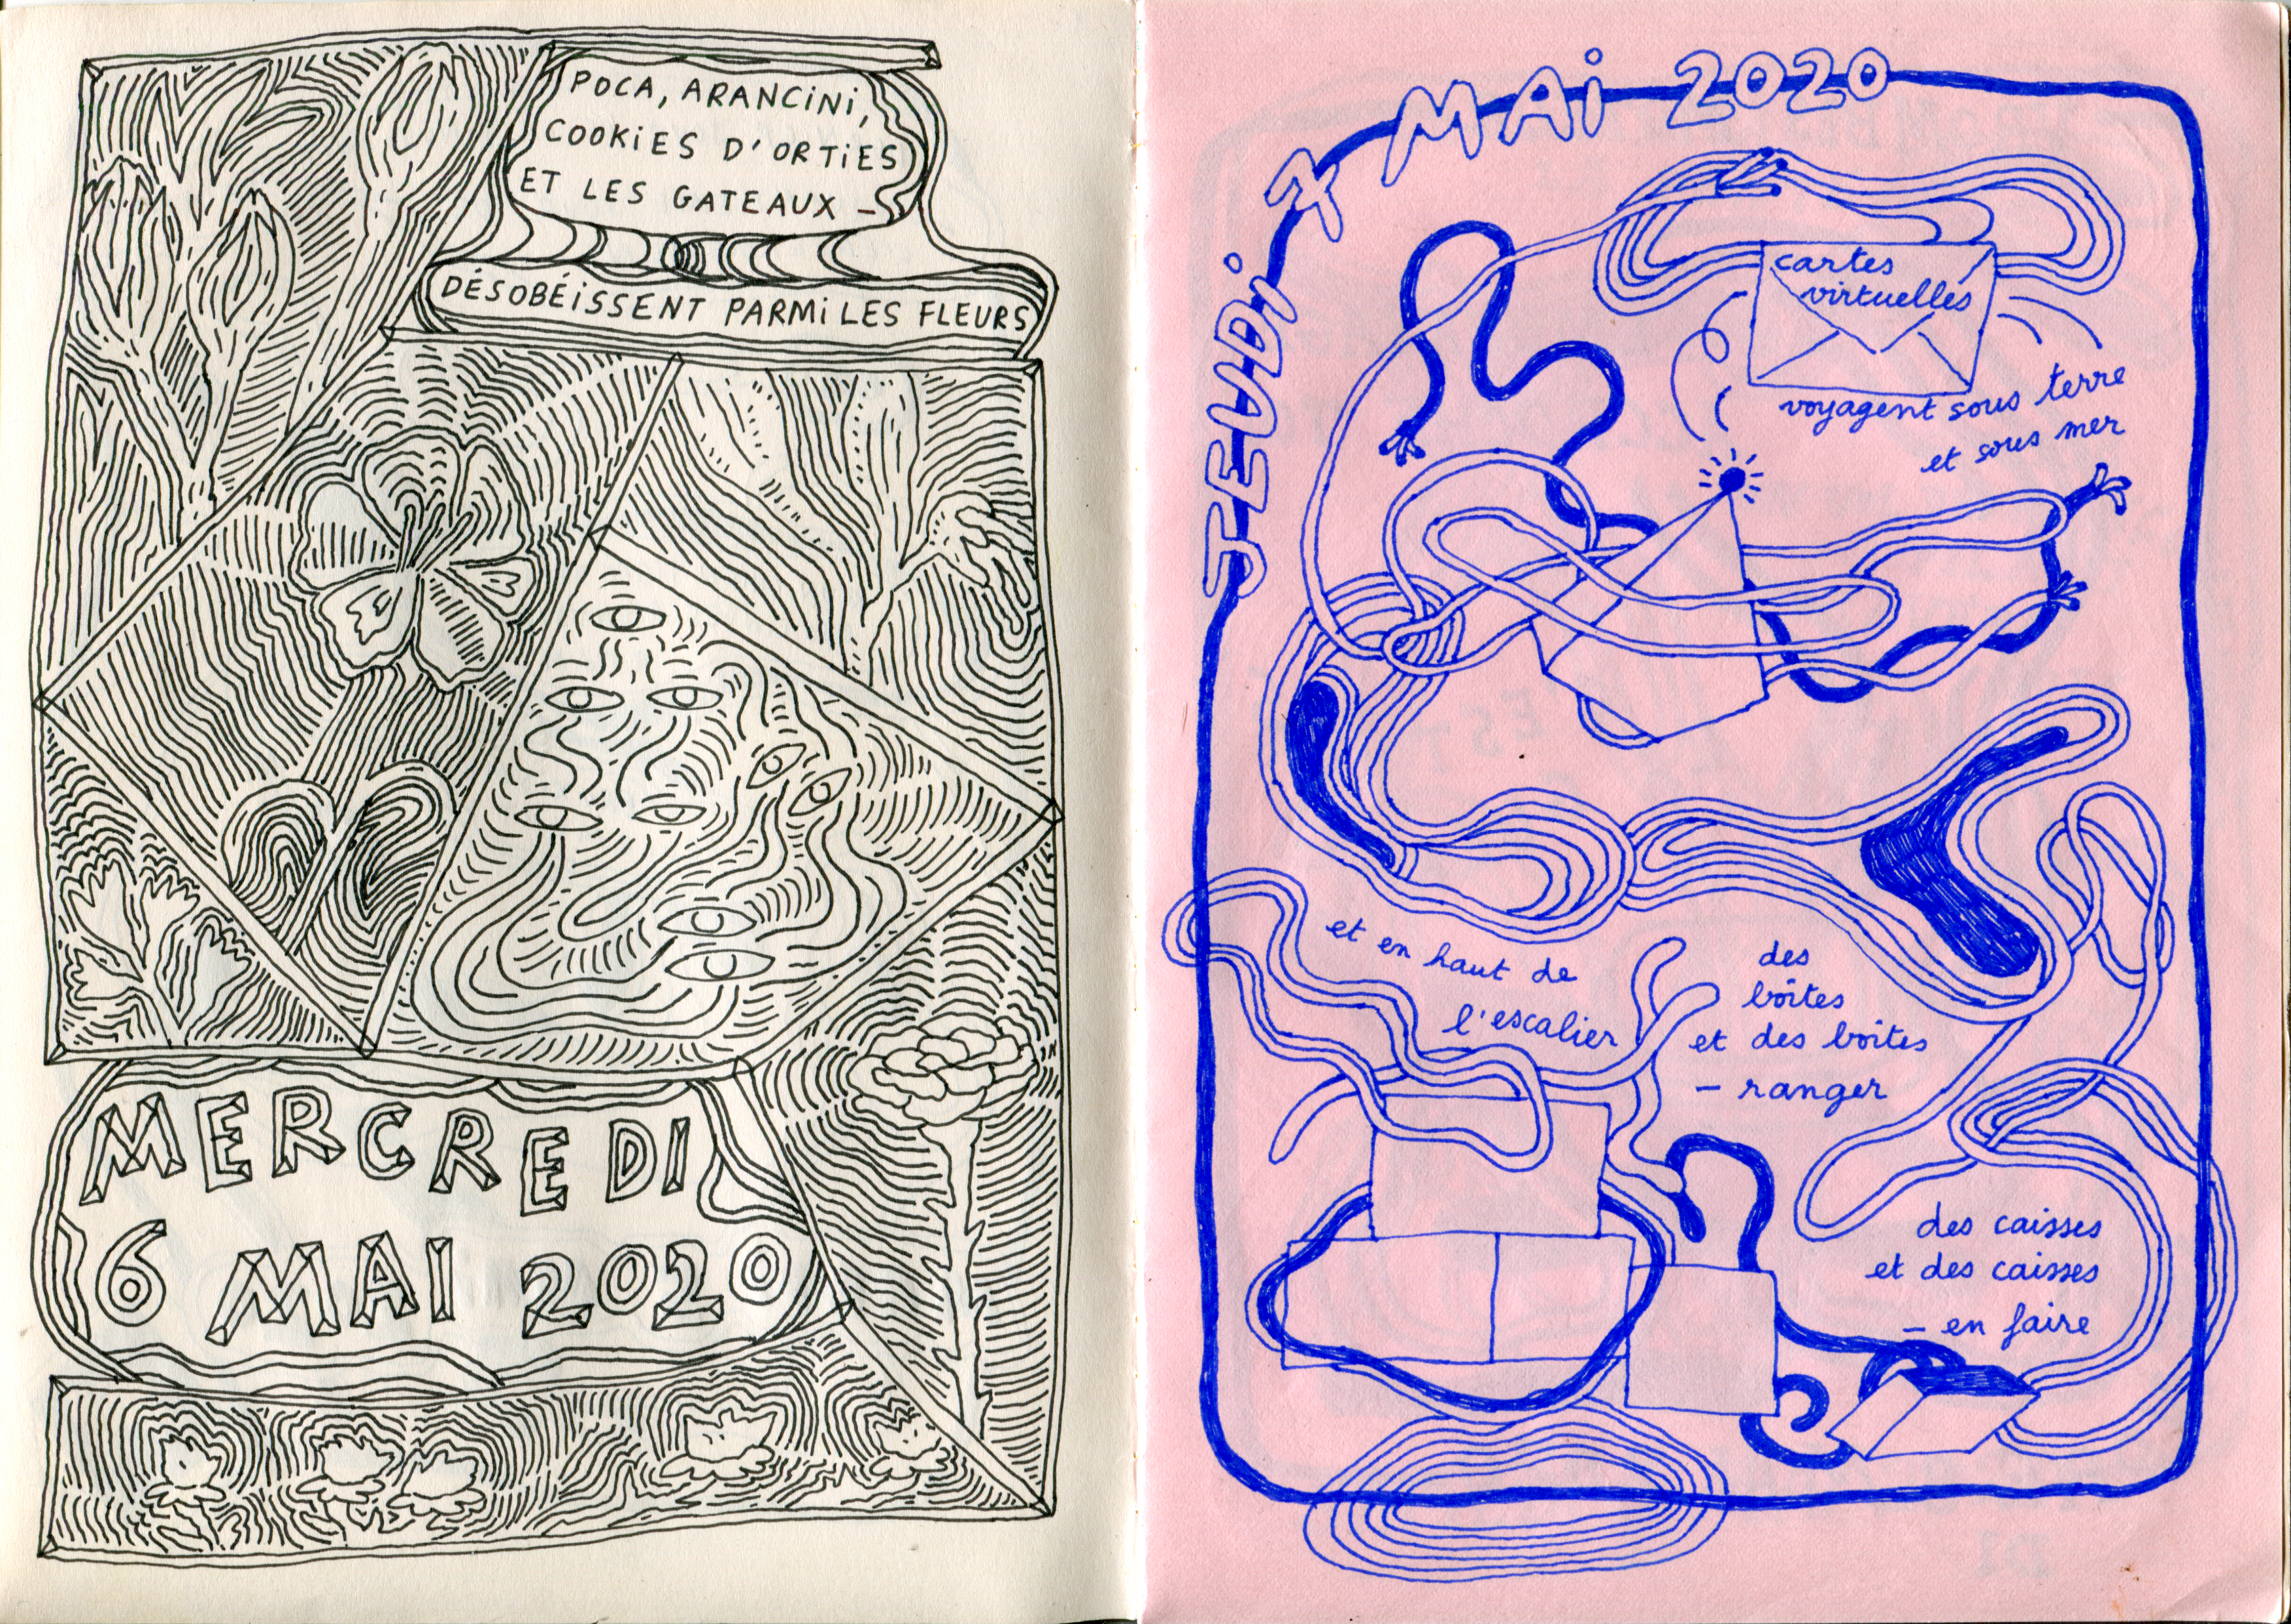 POCA, ARANCiNi,
COOKiES D'ORTiES
ET LES GATEAUX –
DÉSOBÉiSSENT PARMi LES FLEURS
MERCREDI
6 MAI 2020
JEUDi 7 MAi 2020
cartes
virtuelles
voyagent sous terre
et sous mer
et en haut de
l'escalier
des
boîtes
et des boîtes
– ranger
des caisses
et des caisses
– en faire